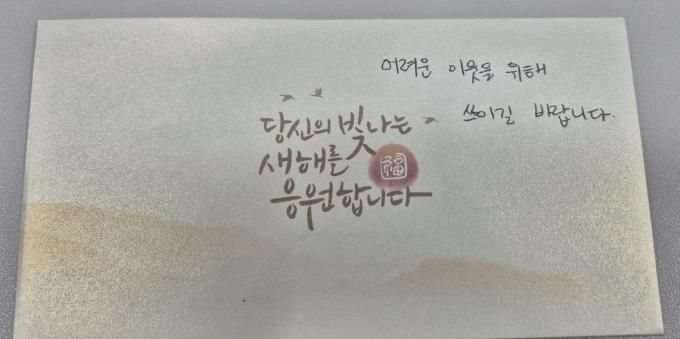 어려운 이웃을 위해
쓰이길 바랍니다.
당신의 빛나는
새해를
福
응원합니다